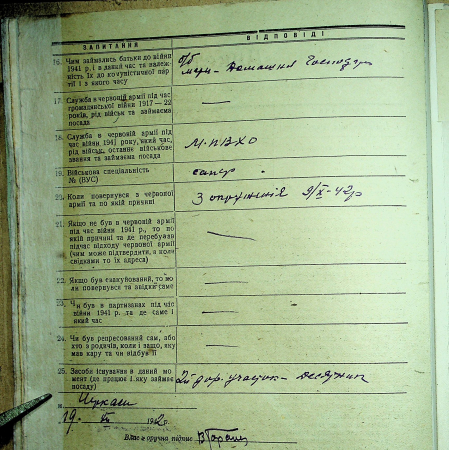 ЗАПИТАННЯ
ВІДПОВІДІ
16. Чим займались батьки до війни
1941 р. і в даний час та належ-
ність їх до комуністичної пар-
тії і з якого часу
б/б
мати - Домашня Господар
17. Служба в червоній армії під час
громадянської війни 1917 — 22
років, рід військ та займаєма
посада
—
18. Служба в червоній армії під
час війни 1941 року, який час,
рід військ, останнє військове
звання та займаєма посада
М-ПВХО
19. Військова спеціальність
№ (ВУС)
сапер
20. Коли повернувся з червоної
армії та по якій причині
З окруженія 9/X-42р
21. Якщо не був в червоній армії
під час війни 1941 р., то по
якій причині та де перебував
підчас відходу червоної армії
(чим може підтвердити, а коли
свідками то їх адреса)
—
22. Якщо був евакуйований, то ко-
ли повернувся та звідки саме
—
23. Чи був в партизанах під час
війни 1941 р. та де саме і
який час
—
24. Чи був репресований сам, або
хто з родичів, коли і защо, яку
мав кару та чи відбув її
—
25. Засоби існування в даний мо-
мент (де працює і яку займає
посаду)
2й дор. участок - десятник
м. Черкаси
19. XI 1942 р.
Власноручна підпис